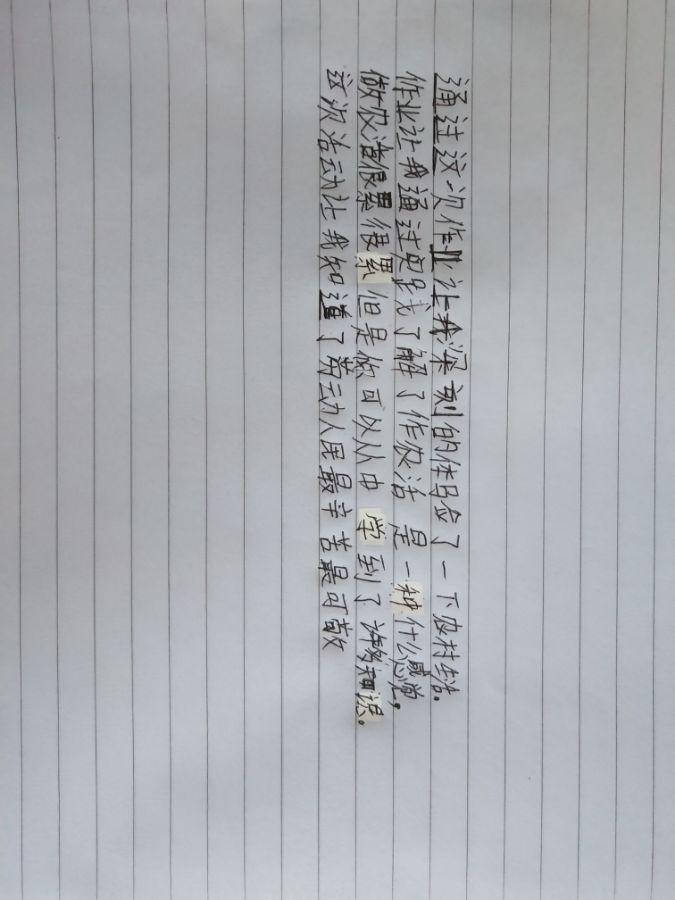 通过这次作业让我深刻的体验了一下农村生活.
作业让我通过实践了解了作农活是一种什么感觉,
做农活很累很累但是你可以从中学到了许多知识。
这次活动让我知道了劳动人民最辛苦最可敬